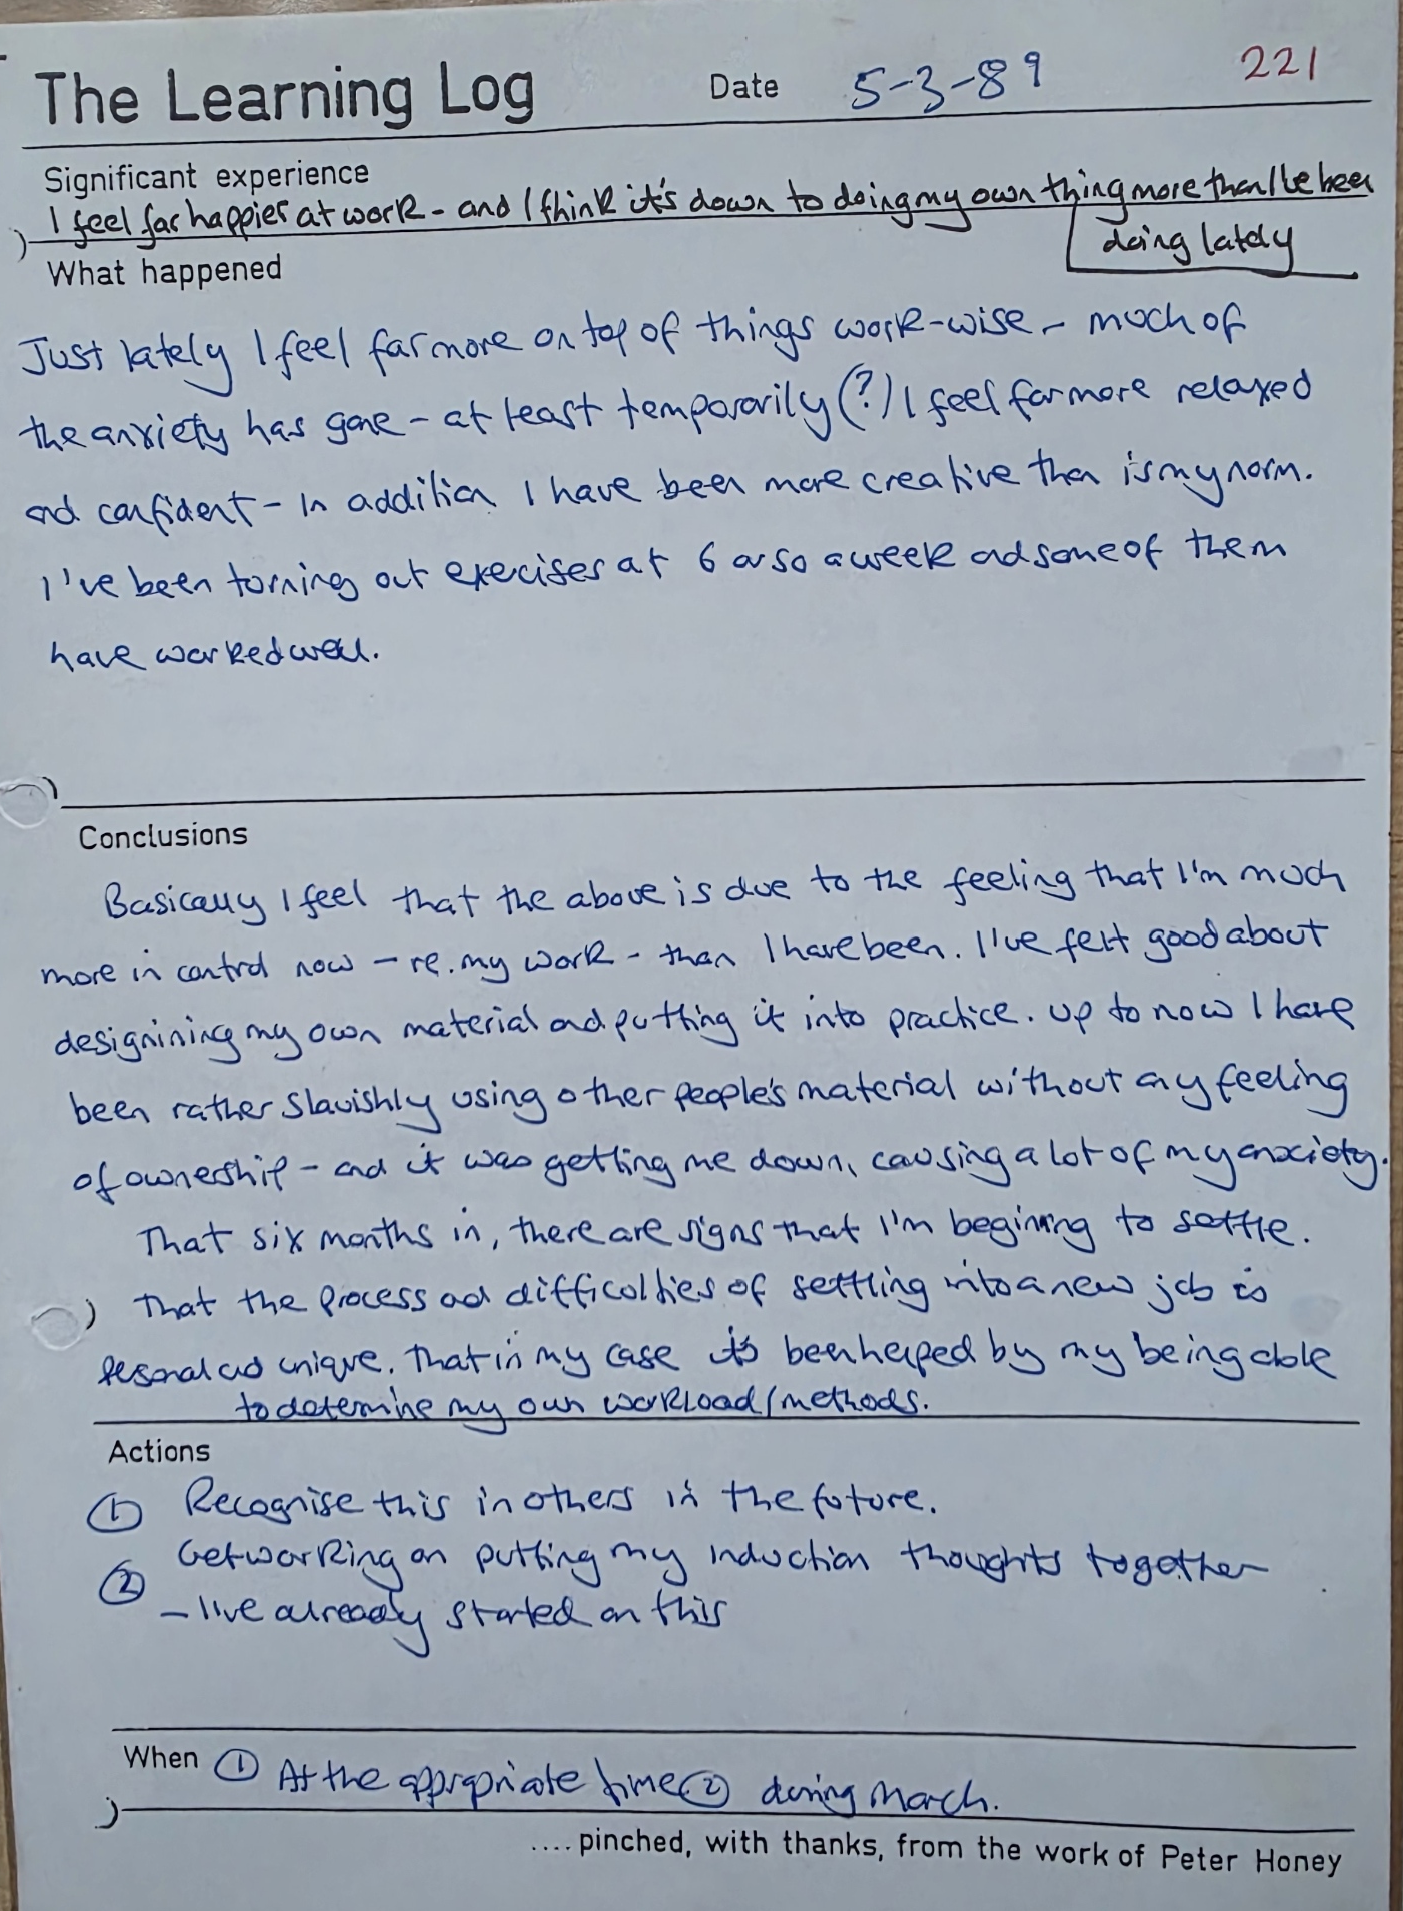 The Learning Log Date 5-3-89 221
Significant experience
I feel far happier at work - and I think it's down to doing my own thing more than I've been
doing lately
What happened
Just lately I feel far more on top of things work-wise - much of
the anxiety has gone - at least temporarily (?) I feel far more relaxed
and confident - In addition I have been more creative than is my norm.
I've been turning out exercises at 6 or so a week and some of them
have worked well.
Conclusions
Basically I feel that the above is due to the feeling that I'm much
more in control now - re. my work - than I have been. I've felt good about
designining my own material and putting it into practice. Up to now I have
been rather slavishly using other people's material without any feeling
of ownership - and it was getting me down, causing a lot of my anxiety.
That six months in, there are signs that I'm begining to settle.
That the process and difficulties of settling into a new job is
personal and unique. That in my case it's been helped by my being able
to determine my own workload/methods.
Actions
① Recognise this in others in the future.
② Get working on putting my induction thoughts together
- I've already started on this
When ① At the appropriate time ② during March.
.... pinched, with thanks, from the work of Peter Honey